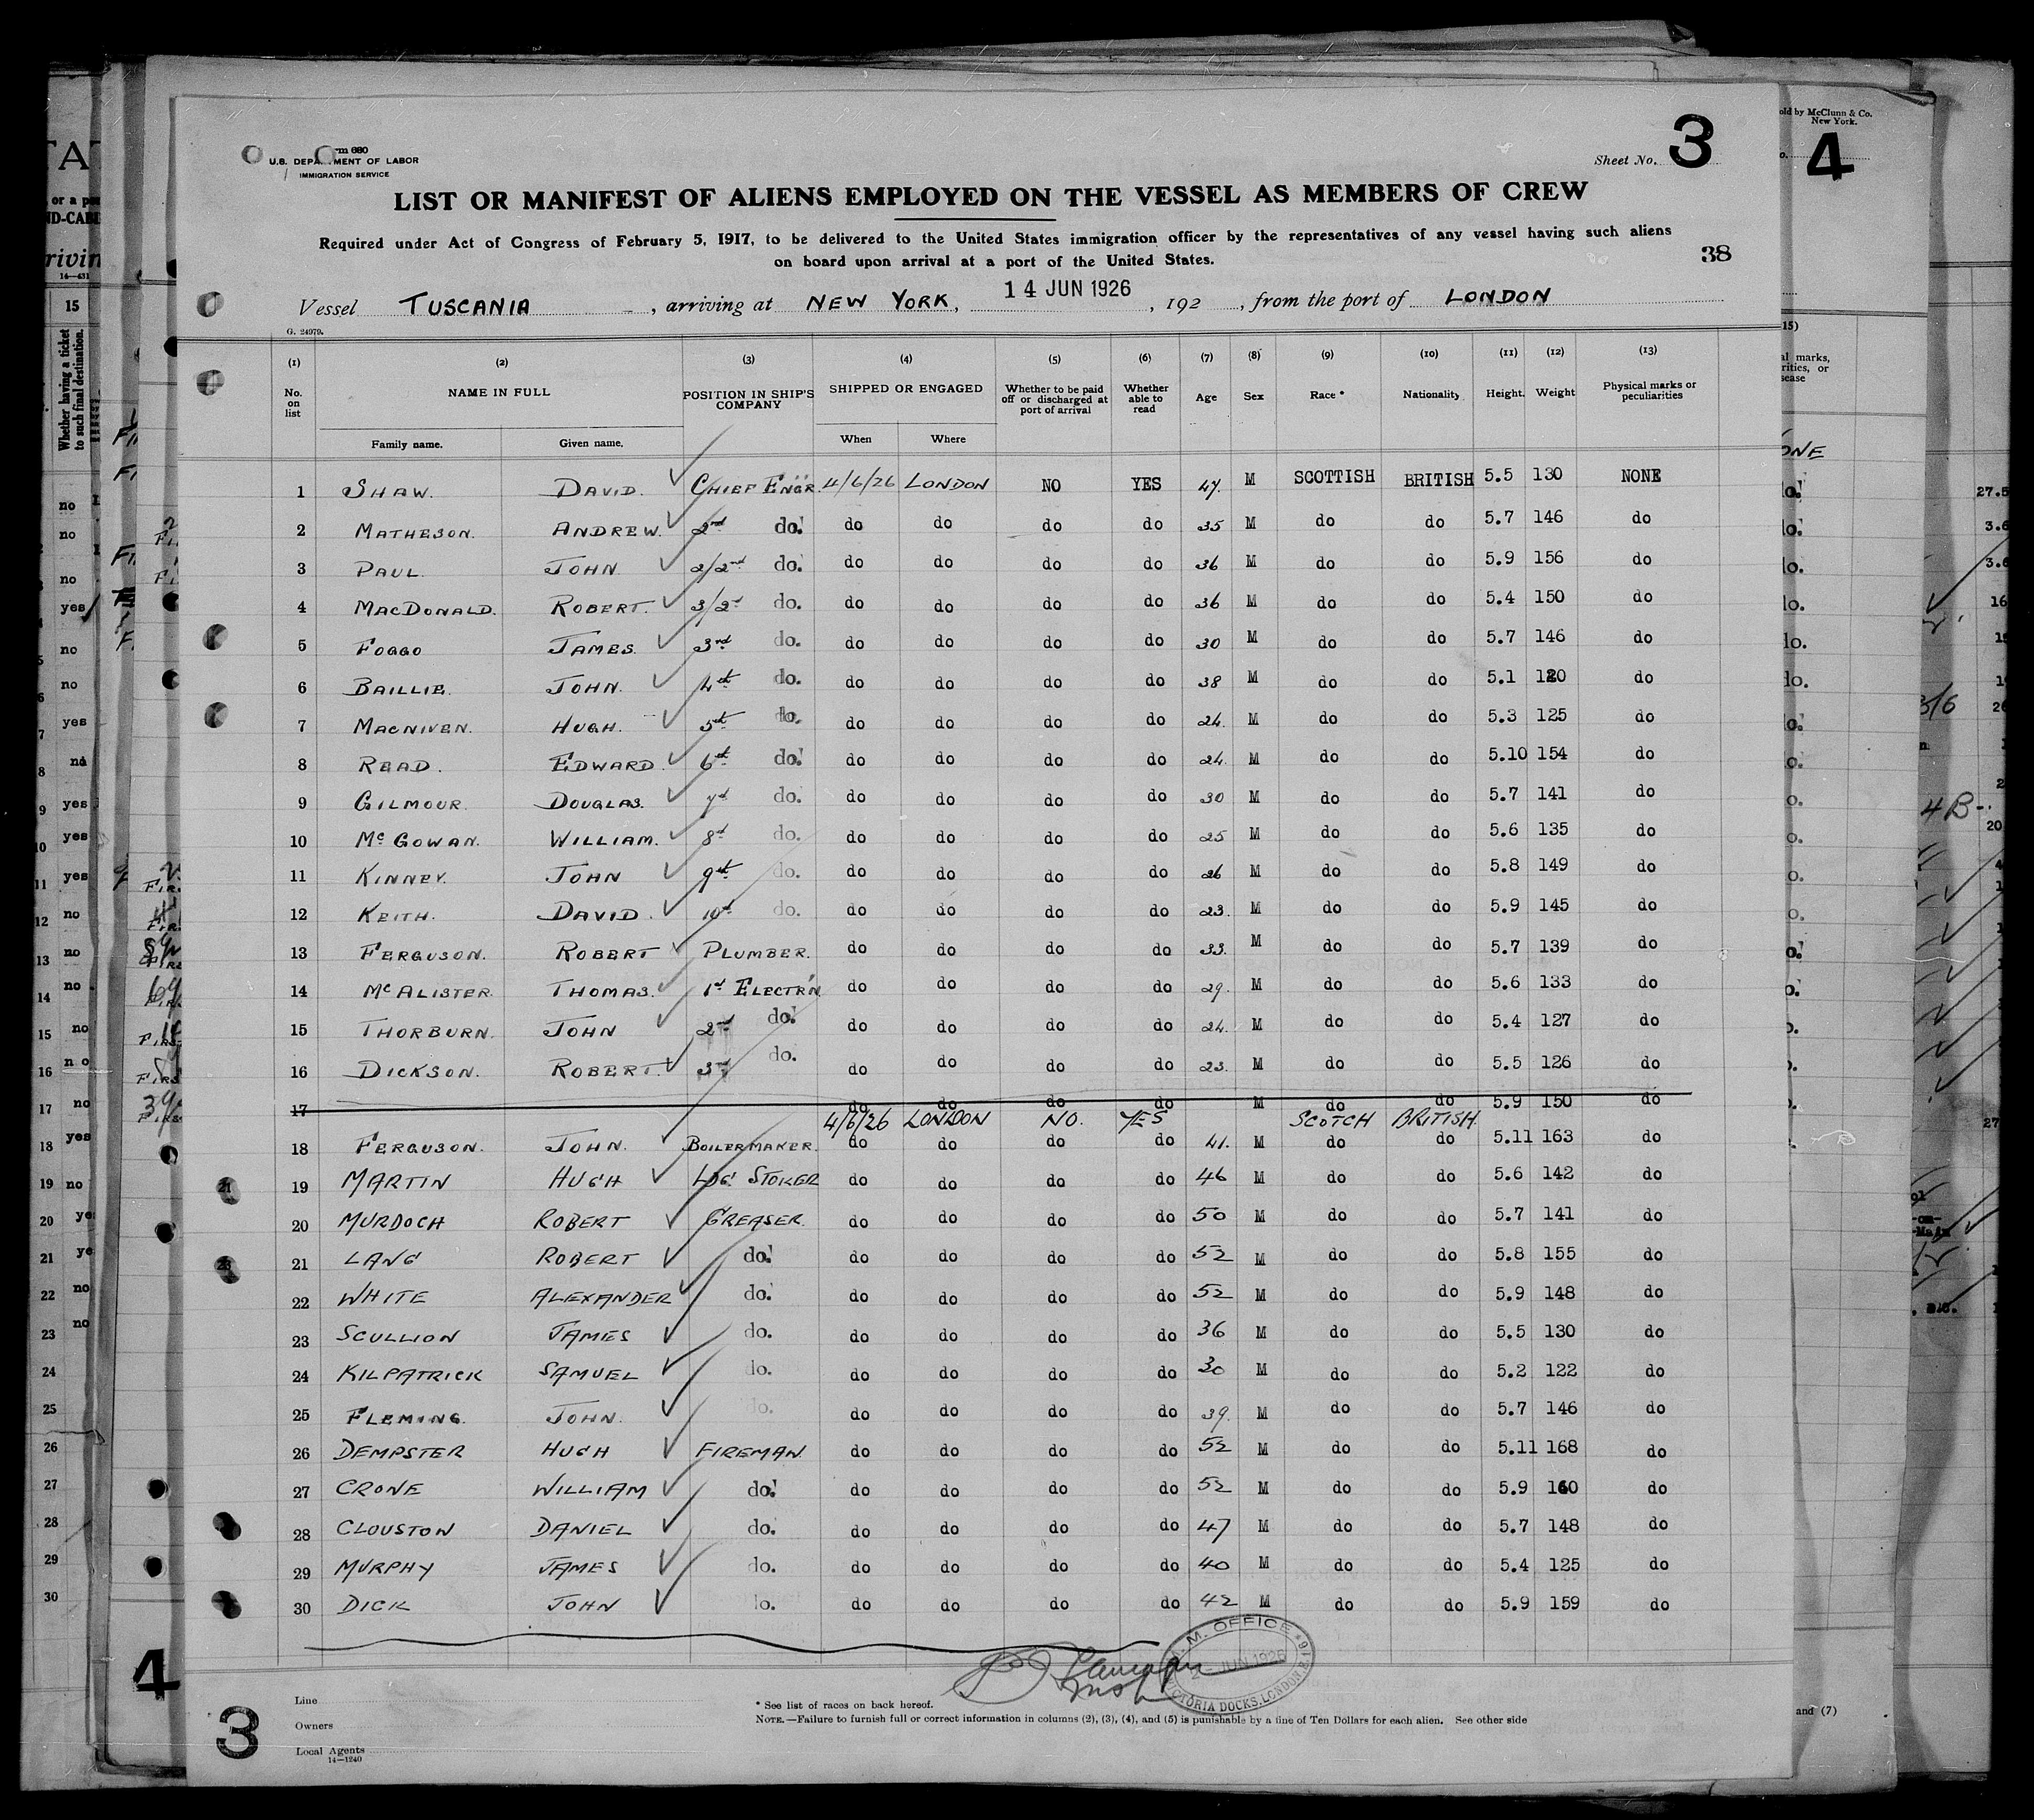 3
Sheet No. 3
U.S. DEPARTMENT OF LABOR
IMMIGRATION SERVICE
LIST OR MANIFEST OF ALIENS EMPLOYED ON THE VESSEL AS MEMBERS OF CREW
Required under Act of Congress of February 5, 1917, to be delivered to the United States immigration officer by the representatives of any vessel having such aliens
on board upon arrival at a port of the United States.
38
Vessel TUSCANIA, arriving at NEW YORK, 14 JUN 1926, 192 , from the port of LONDON
G. 24979.
(1) (2) (3) (4) (5) (6) (7) (8) (9) (10) (11) (12) (13)
No. on list NAME IN FULL POSITION IN SHIP'S COMPANY SHIPPED OR ENGAGED Whether to be paid off or discharged at port of arrival Whether able to read Age Sex Race * Nationality Height. Weight Physical marks or peculiarities
Family name. Given name. When Where
1 SHAW. DAVID. CHIEF ENGR. 4/6/26 LONDON NO YES 47. M SCOTTISH BRITISH 5.5 130 NONE
2 MATHESON. ANDREW. 2nd do. do do do do 35 M do do 5.7 146 do
3 PAUL. JOHN 2/2nd do. do do do do 36 M do do 5.9 156 do
4 MACDONALD. ROBERT. 3/2d do. do do do do 36 M do do 5.4 150 do
5 FOGGO JAMES. 3rd do. do do do do 30 M do do 5.7 146 do
6 BAILLIE. JOHN. 4th do. do do do do 38 M do do 5.1 120 do
7 MACNIVEN. HUGH. 5th do. do do do do 24. M do do 5.3 125 do
8 READ. EDWARD. 6th do. do do do do 24. M do do 5.10 154 do
9 GILMOUR. DOUGLAS. 7th do. do do do do 30 M do do 5.7 141 do
10 McGOWAN. WILLIAM. 8th do. do do do do 25 M do do 5.6 135 do
11 KINNEY. JOHN 9th do. do do do do 26 M do do 5.8 149 do
12 KEITH. DAVID. 10th do. do do do do 23. M do do 5.9 145 do
13 FERGUSON. ROBERT PLUMBER. do do do do 33. M do do 5.7 139 do
14 McALISTER. THOMAS. 1st ELECTRN do do do do 29. M do do 5.6 133 do
15 THORBURN. JOHN 2nd do. do do do do 24. M do do 5.4 127 do
16 DICKSON. ROBERT. 3rd do. do do do do 23. M do do 5.5 126 do
17 do do do do M do do 5.9 150 do
4/6/26 LONDON NO. YES SCOTCH BRITISH
18 FERGUSON. JOHN. BOILERMAKER. do do do do 41. M do do 5.11 163 do
19 MARTIN HUGH LDG. STOKER do do do do 46 M do do 5.6 142 do
20 MURDOCH ROBERT GREASER. do do do do 50 M do do 5.7 141 do
21 LANG ROBERT do. do do do do 52 M do do 5.8 155 do
22 WHITE ALEXANDER do. do do do do 52 M do do 5.9 148 do
23 SCULLION JAMES do. do do do do 36 M do do 5.5 130 do
24 KILPATRICK SAMUEL do. do do do do 30 M do do 5.2 122 do
25 FLEMING. JOHN. o. do do do do 39. M do do 5.7 146 do
26 DEMPSTER HUGH FIREMAN. do do do do 52 M do do 5.11 168 do
27 CRONE WILLIAM do. do do do do 52 M do do 5.9 160 do
28 CLOUSTON DANIEL do. do do do do 47 M do do 5.7 148 do
29 MURPHY JAMES do. do do do do 40 M do do 5.4 125 do
30 DICK JOHN do. do do do do 42 M do do 5.9 159 do
M. OFFICE
JUN 1926
VICTORIA DOCKS, LONDON, E.
Line
Owners
Local Agents
14—1240
* See list of races on back hereof.
NOTE.—Failure to furnish full or correct information in columns (2), (3), (4), and (5) is punishable by a fine of Ten Dollars for each alien. See other side
3
4
4
old by McClunn & Co.
New York.
and (7)